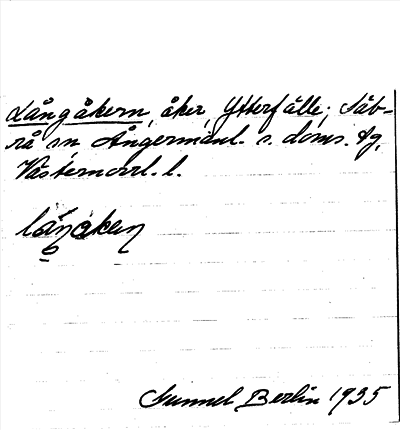 Långåkern, åker, Ytterfälle, Säb-
rå sn, Ångermanl. s. doms. tg,
Västernorrl. l.
låŋåkeɳ
Gunnel Berlin 1935